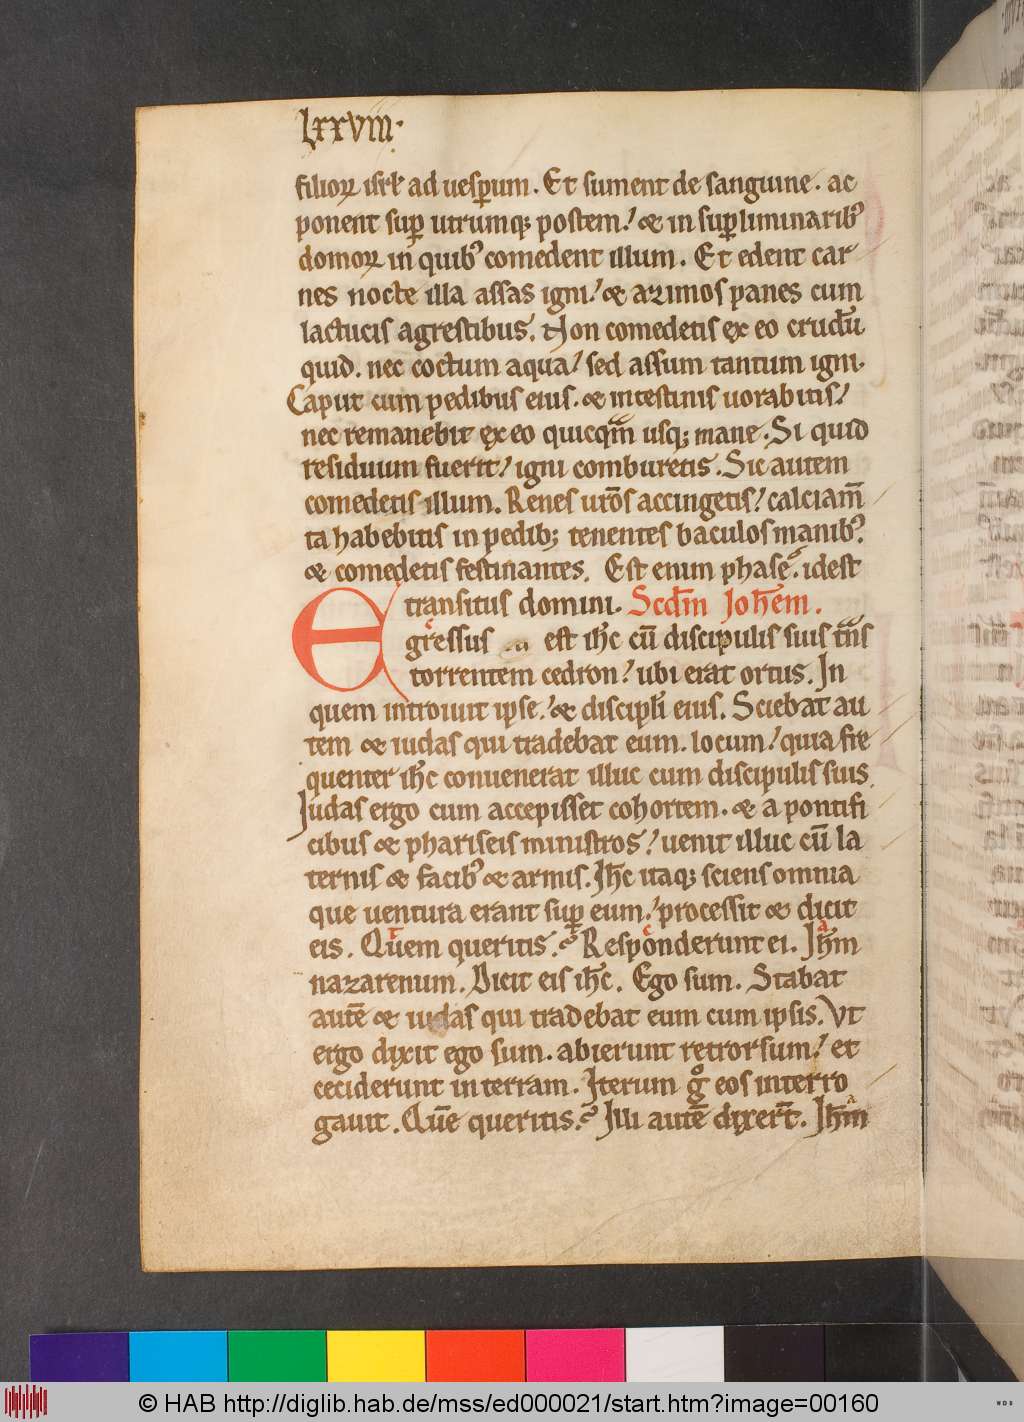 lxxviii·
filioꝝ isrł ad uesꝑum. Et sument de sanguine. ac
ponent suꝑ utrumqꝫ postem / & in suꝑliminarib᾽
domoꝝ in quib᾽ comedent illum. Et edent car
nes nocte illa assas igni / & azimos panes cum
lactucis agrestibus. Non comedetis ex eo crudū
quid. nec coctum aqua / sed assum tantum igni.
Caput cum pedibus eius. & intestinis uorabitis /
nec remanebit ex eo quicqm̄ usqꝫ mane. Si quid
residuum fuerit / igni comburetis. Sic autem
comedetis illum. Renes ur̄os accingetis / calciam̄
ta habebitis in pedibꝫ tenentes baculos manib᾽.
& comedetis festinantes. Est enim phase. idest
transitus domini. Scd̄m Joh̄em.
Egressus est ih̄c cū discipulis suis tn̄s
torrentem cedron / ubi erat ortus. In
quem introiuit ipse / & discipłi eius. Sciebat au
tem & iudas qui tradebat eum. locum / quia fre
quenter ih̄c conuenerat illuc cum discipulis suis.
Judas ergo cum accepisset cohortem. & a pontifi
cibus & phariseis ministros / uenit illuc cū la
ternis & facib᾽ & armis. Jh̄c itaqꝫ sciens omnia
que uentura erant suꝑ eum / processit & dicit
eis. Quem queritis. Responderunt ei. Jh̄m
nazarenum. Dicit eis ih̄c. Ego sum. Stabat
autē & iudas qui tradebat eum cum ipsis. Vt
ergo dixit ego sum. abierunt retrorsum / et
ceciderunt in terram. Iterum gͦ eos interro
gauit. Quē queritis. Illi autē dixer̄t. Jh̄m
© HAB http://diglib.hab.de/mss/ed000021/start.htm?image=00160